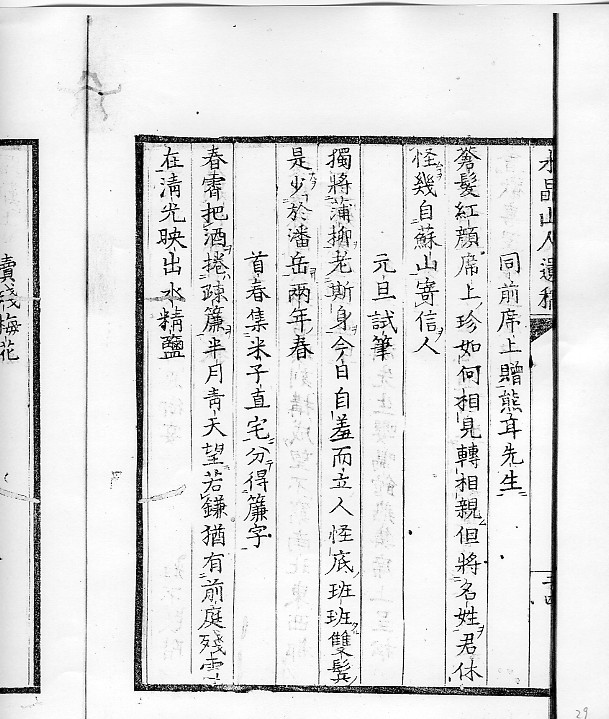 水晶山人遺稿
同前席上贈熊耳先生
蒼髮紅顏席上珍如何相見轉相親但將名姓君休
怪幾自蘇山寄信人
元旦試筆
獨將蒲柳老斯身今日自羞而立人怪底班班雙鬂
是少於潘岳兩年春
首春集米子直宅分得簾字
春霄把酒捲疎簾半月青天望若鎌猶有前庭殘雪
在清光映出水精鹽
賣殘梅花
29